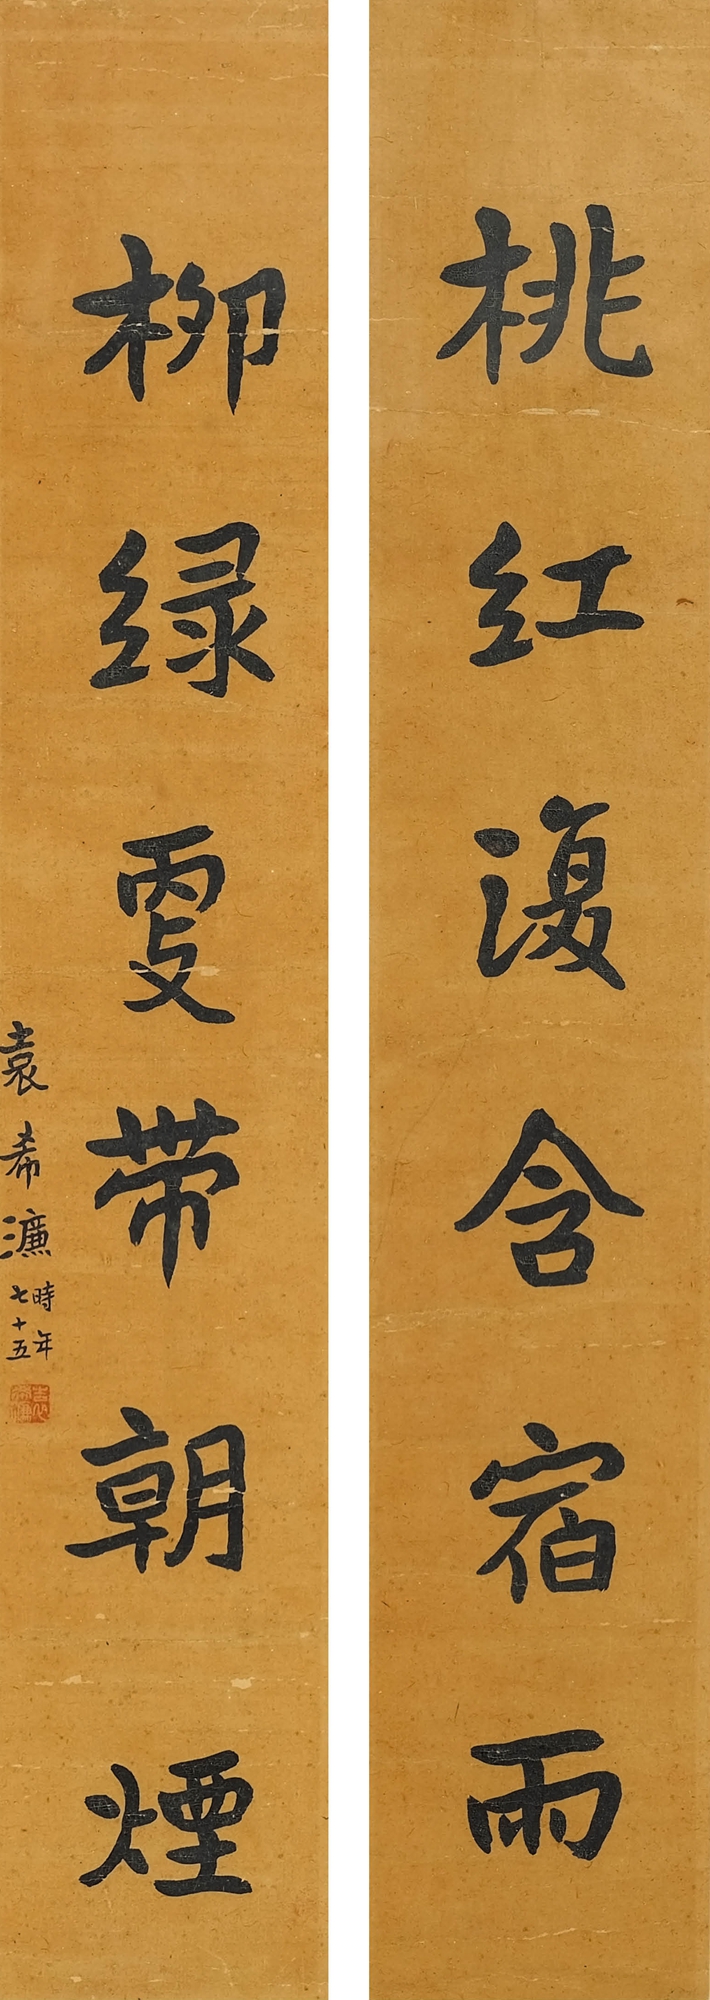 桃红復含宿雨
柳绿更带朝煙
袁希濂
時年
七十五